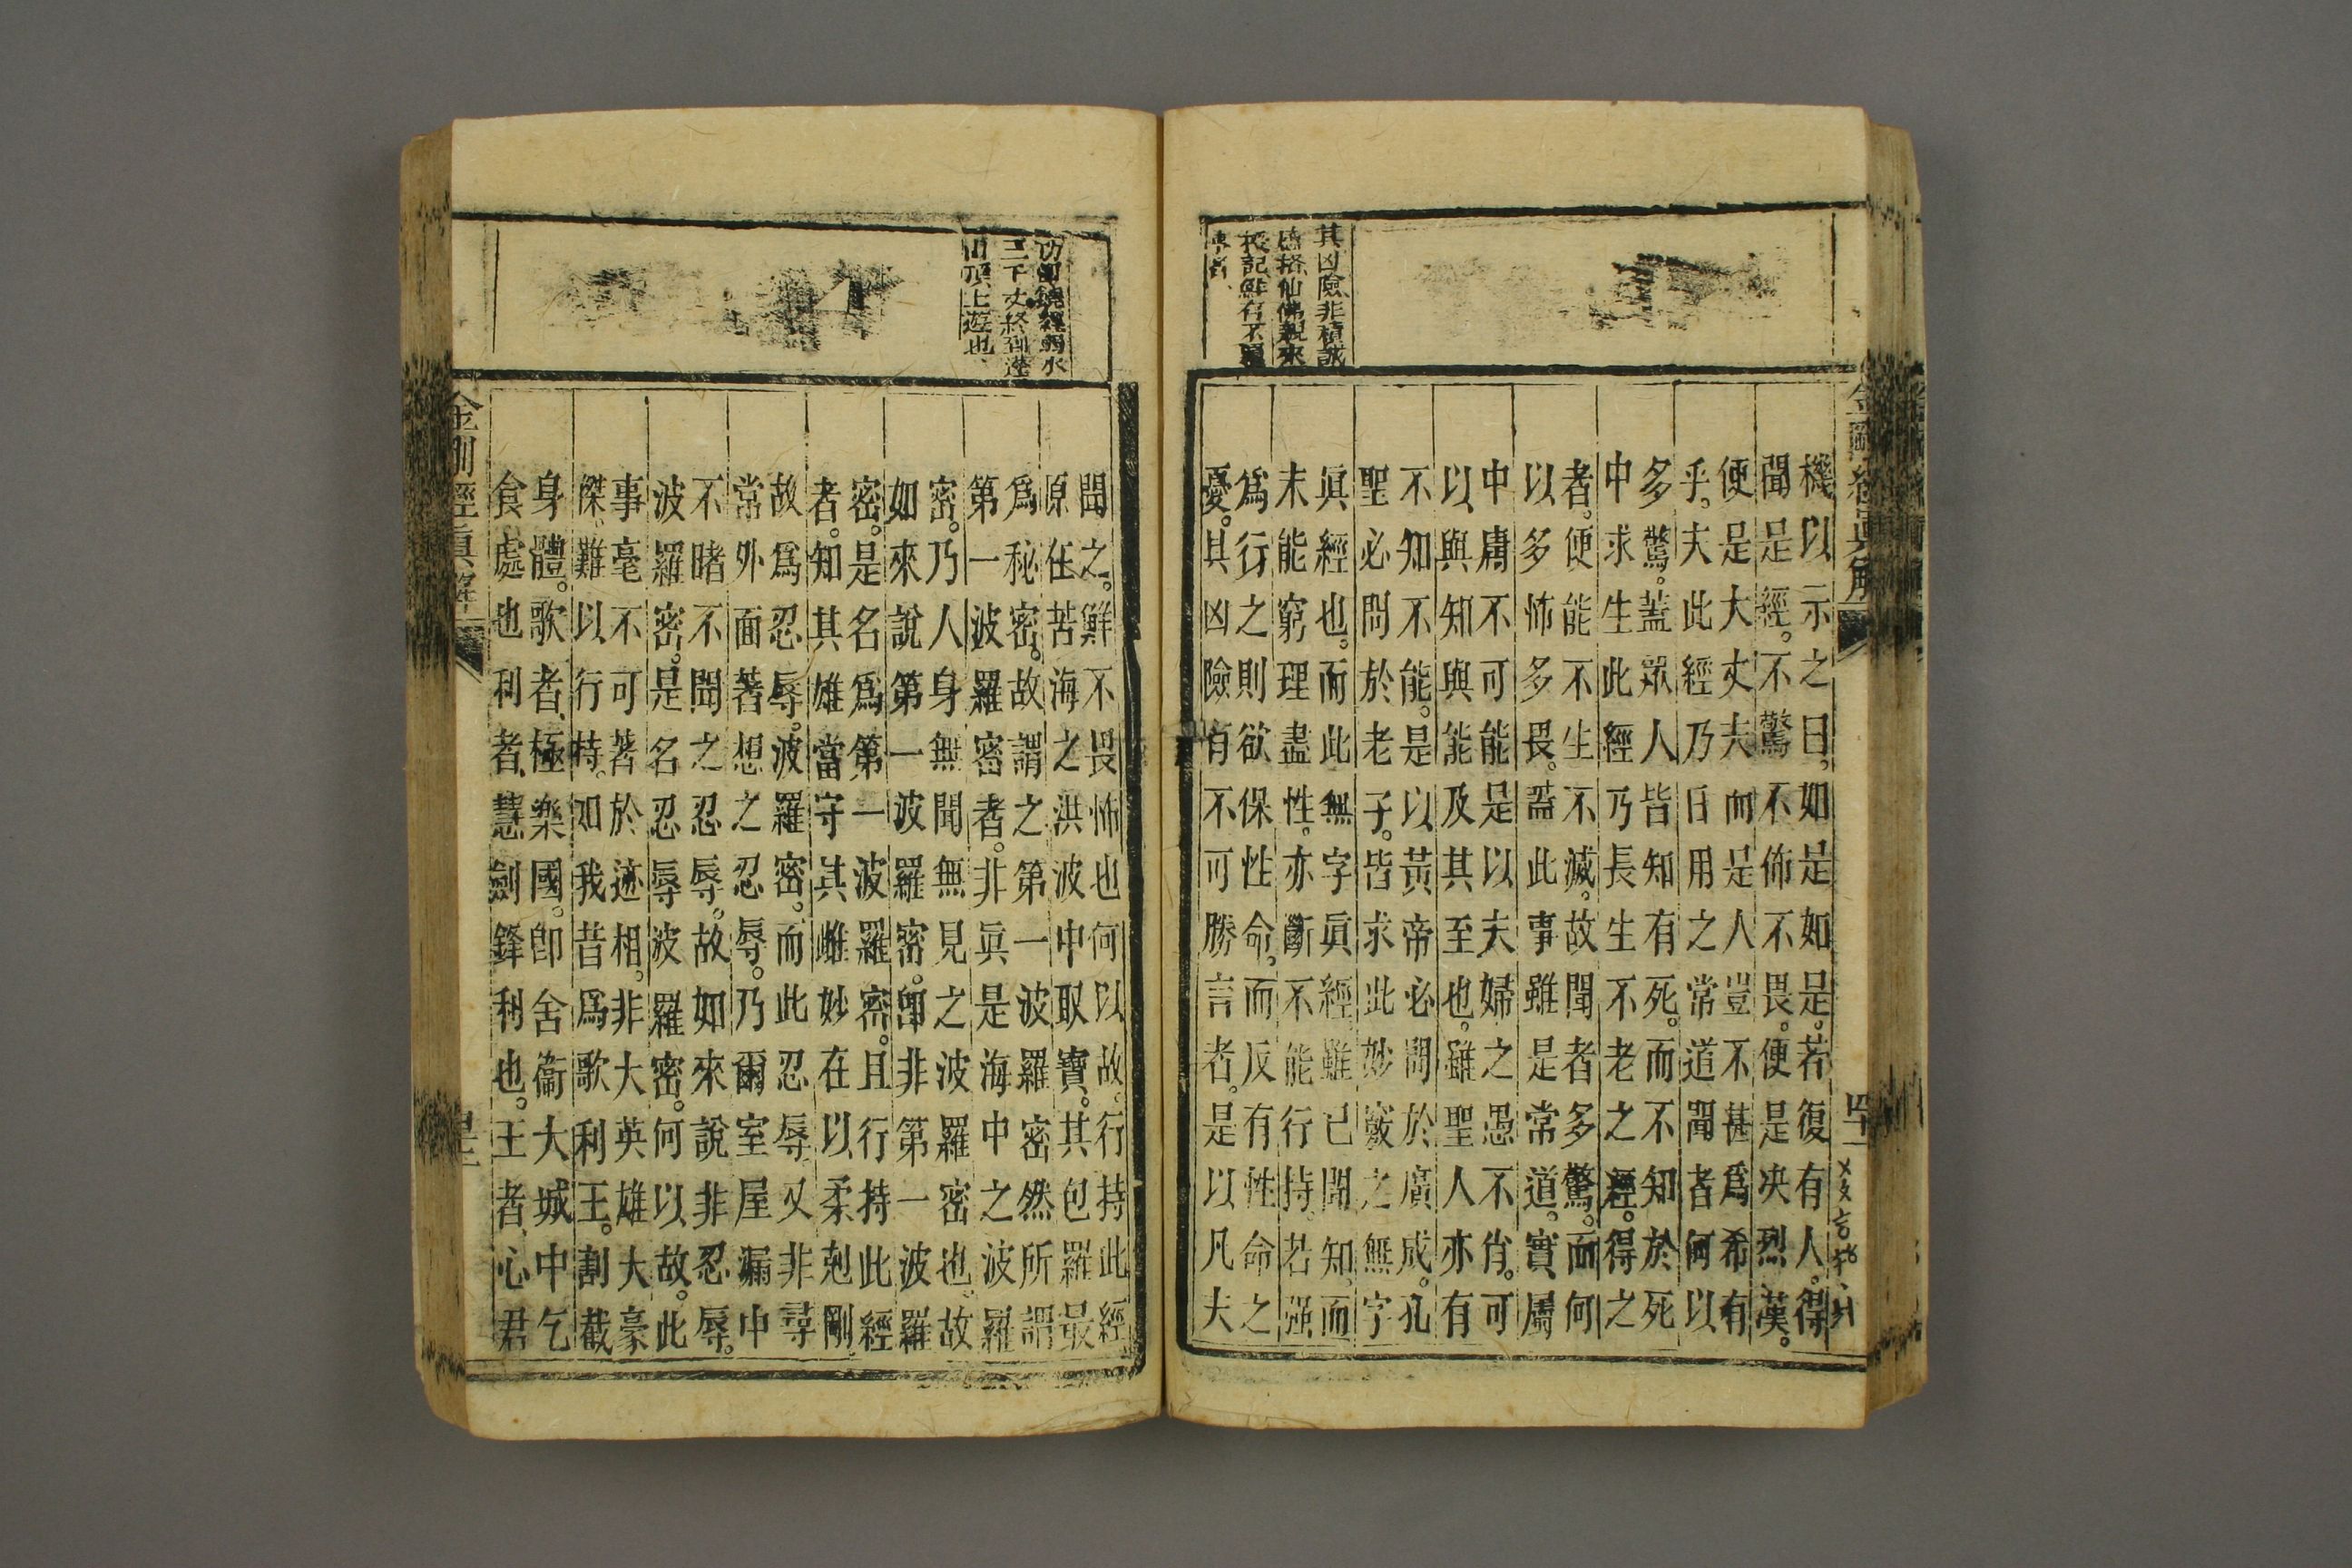 其凶險非積誠
感格仙佛親來
授記鮮有不
機以示之曰如是如是若復有人得
聞是經不驚不怖不畏便是决烈漢
便是大丈夫而是人豈不甚爲希有
乎夫此經乃日用之常道聞者何以
多驚蓋眾人皆知有死而不知於死
中求生此經乃長生不老之經得之
者便能不生不滅故聞者多驚而何
以多怖多畏蓋此事雖是常道實屬
中庸不可能是以夫婦之愚不肖可
以與知與能及其至也雖聖人亦有
不知不能是以黃帝必問於廣成孔
聖必問於老子皆求此妙竅之無字
眞經也而此無字眞經雖已聞知而
未能窮理盡性亦斷不能行持若强
爲行之則欲保性命而反有性命之
憂其凶險有不可勝言者是以凡夫
金剛經眞解
四十一
功即饒經弱水
三千丈終到蓬
山頂上遊也
聞之鮮不畏怖也何以故行持此經
原任苦海之洪波中取寶其包羅最
爲秘密故謂之第一波羅密然所謂
第一波羅密者非眞是海中之波羅
密乃人身無聞無見之波羅密也故
如來說第一波羅密即非第一波羅
密是名爲第一波羅密且行持此經
者知其雄當守其雌妙在以柔剋剛
故爲忍辱波羅密而此忍辱又非尋
常外面著想之忍辱乃爾室屋漏中
不睹不聞之忍辱故如來說非忍辱
波羅密是名忍辱波羅密何以故此
事毫不可著於迹相非大英雄大豪
傑難以行持如我昔爲歌利王割截
身體歌者極樂國卽舍衞大城中乞
食處也利者慧劍鋒利也王者心君
金剛經眞解